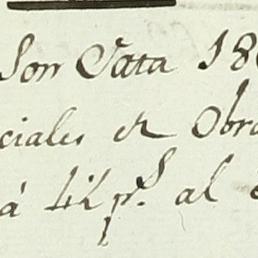 Son Data 18
ciales de Obra
á 42 p.s al